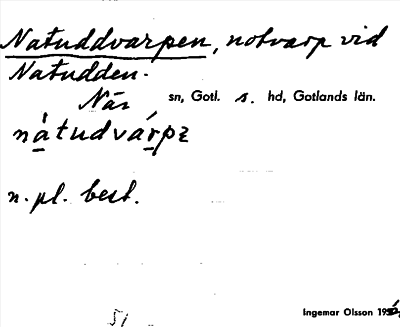 Natuddvarpen, notvarp vid
Natudden.
När sn, Gotl. s. hd, Gotlands län.
nátudvárpe
n. pl. best.
Ingemar Olsson
51